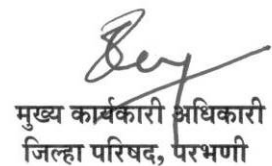 मुख्य कार्यकारी अधिकारी
जिल्हा परिषद, परभणी